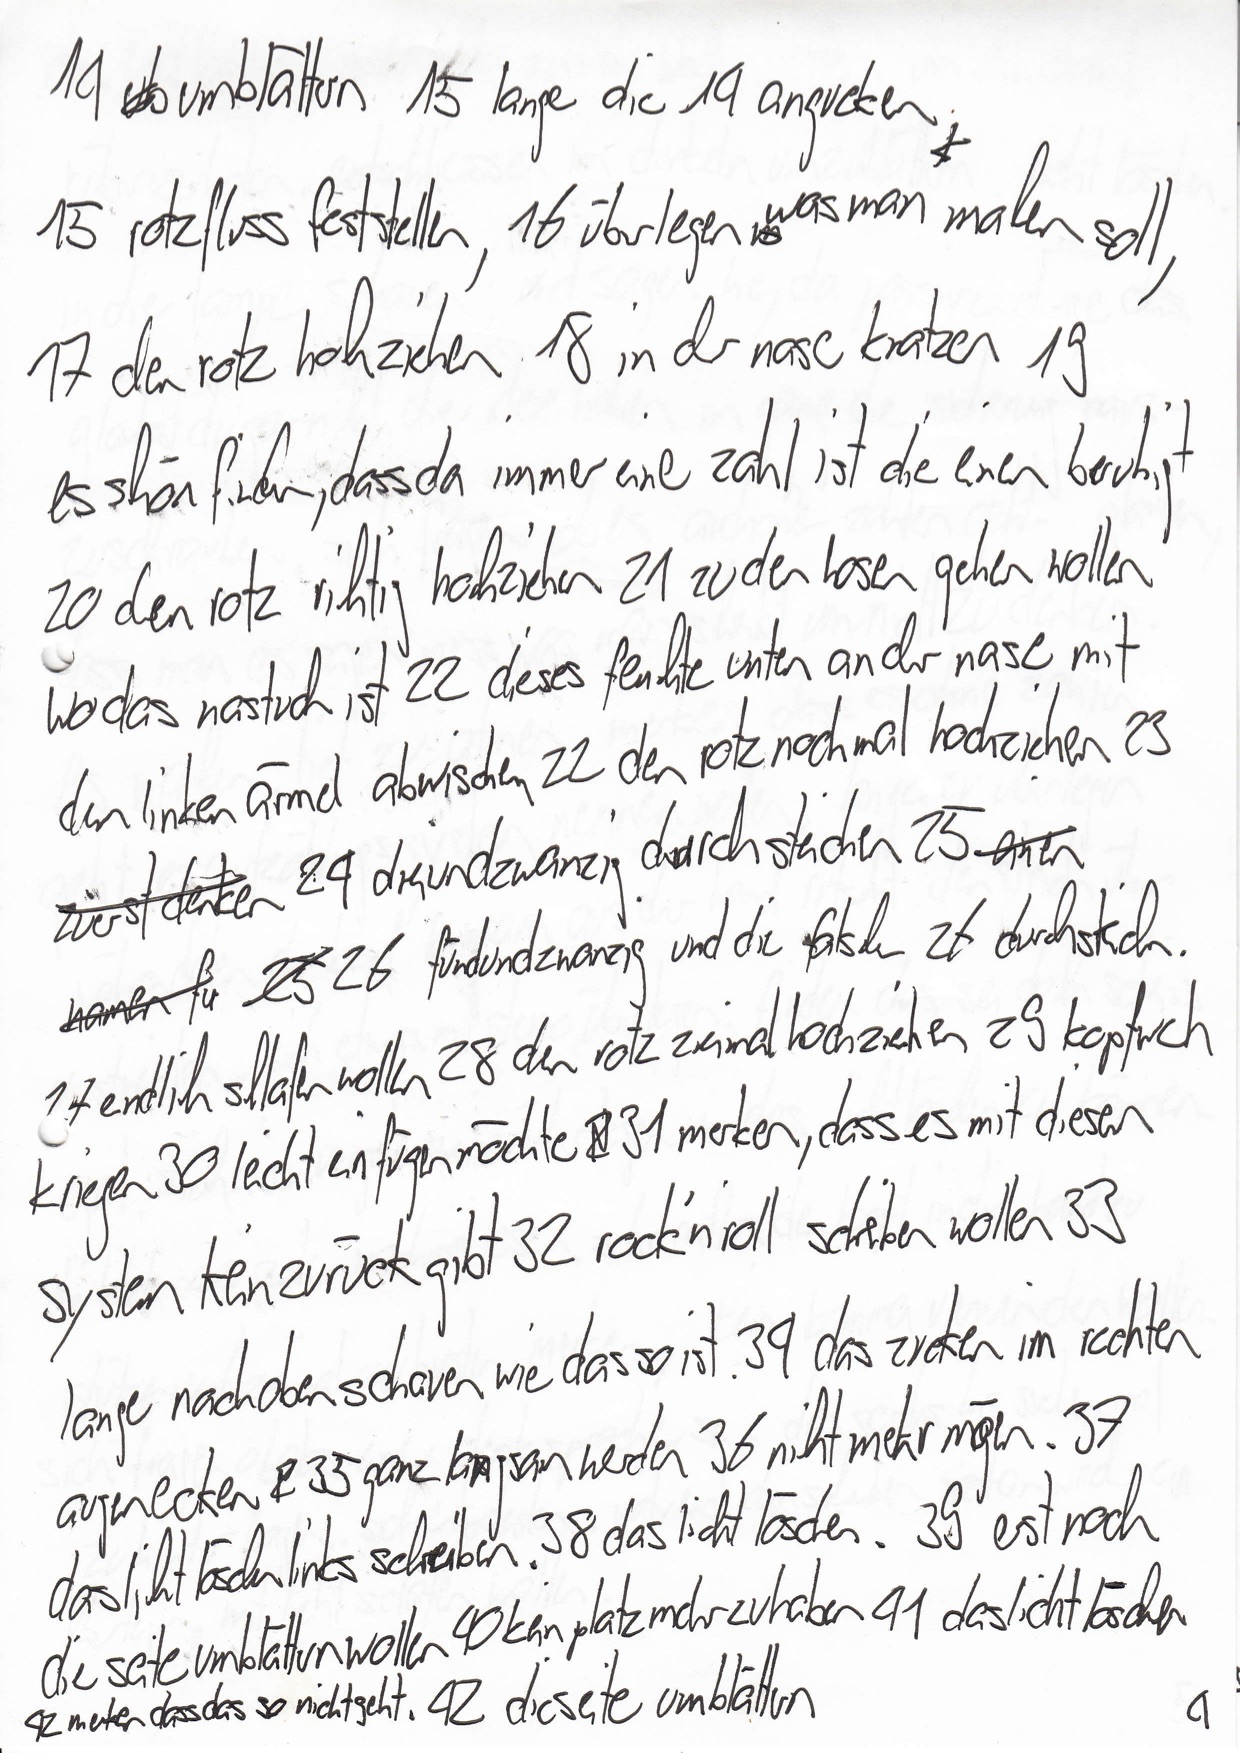 14 umblättern 15 lange die 14 angucken.
15 rotzfluss feststellen, 16 überlegen was man malen soll,
17 den rotz hohziehen 18 in der nase kratzen 19
es schön finden, dass da immer eine zahl ist die einen beruhigt
20 den rotz richtig hochziehen 21 zu den hosen gehen wollen
wo das nastuch ist 22 dieses feuchte unten an der nase mit
den linken ärmel abwischen 22 den rotz nochmal hochziehen 23
zuerst denken 24 dreiundzwanzig durchsteichen 25
namen für 25 26 fündundzwanzig und die falsche 26 durchsteich.
17 endlich schlafen wollen 28 den rotz zweimal hochziehen 29 kopfweh
kriegen 30 leicht einfügen möchte 31 merken, dass es mit diesen
system kein zurück gibt 32 rock'n roll schreiben wollen 33
lange nach oben schauen wie das so ist. 34 das zucken im rechten
augenecken 35 ganz langsam werden 36 nicht mehr mögen. 37
das licht löschen links schreiben. 38 das licht löschen. 39 erst noch
die seite umblättern wollen 40 kein platz mehr zu haben 41 das licht löschen
42 merken dass das so nicht geht. 42 die seite umblättern
4